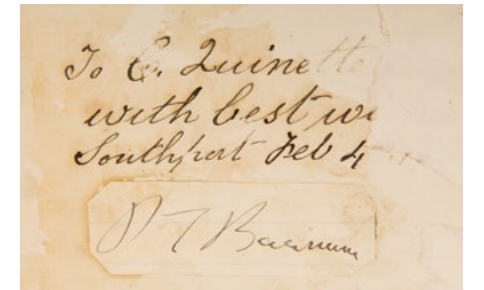 To C. Quinette
with best wi
Southport Feb 4
P T Barnum